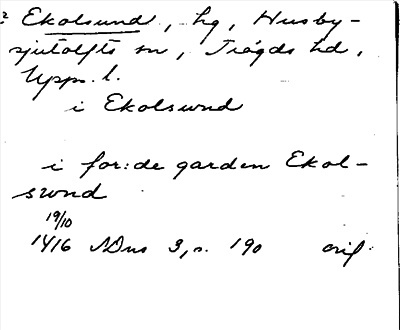 ² Ekolsund, hg, Husby-
sjutolfts sn, Trögds hd,
Upps. l.
i Ekolswnd
i for:de garden Ekol-
swnd
19/10
1416 NDns 3, s. 190 orig.